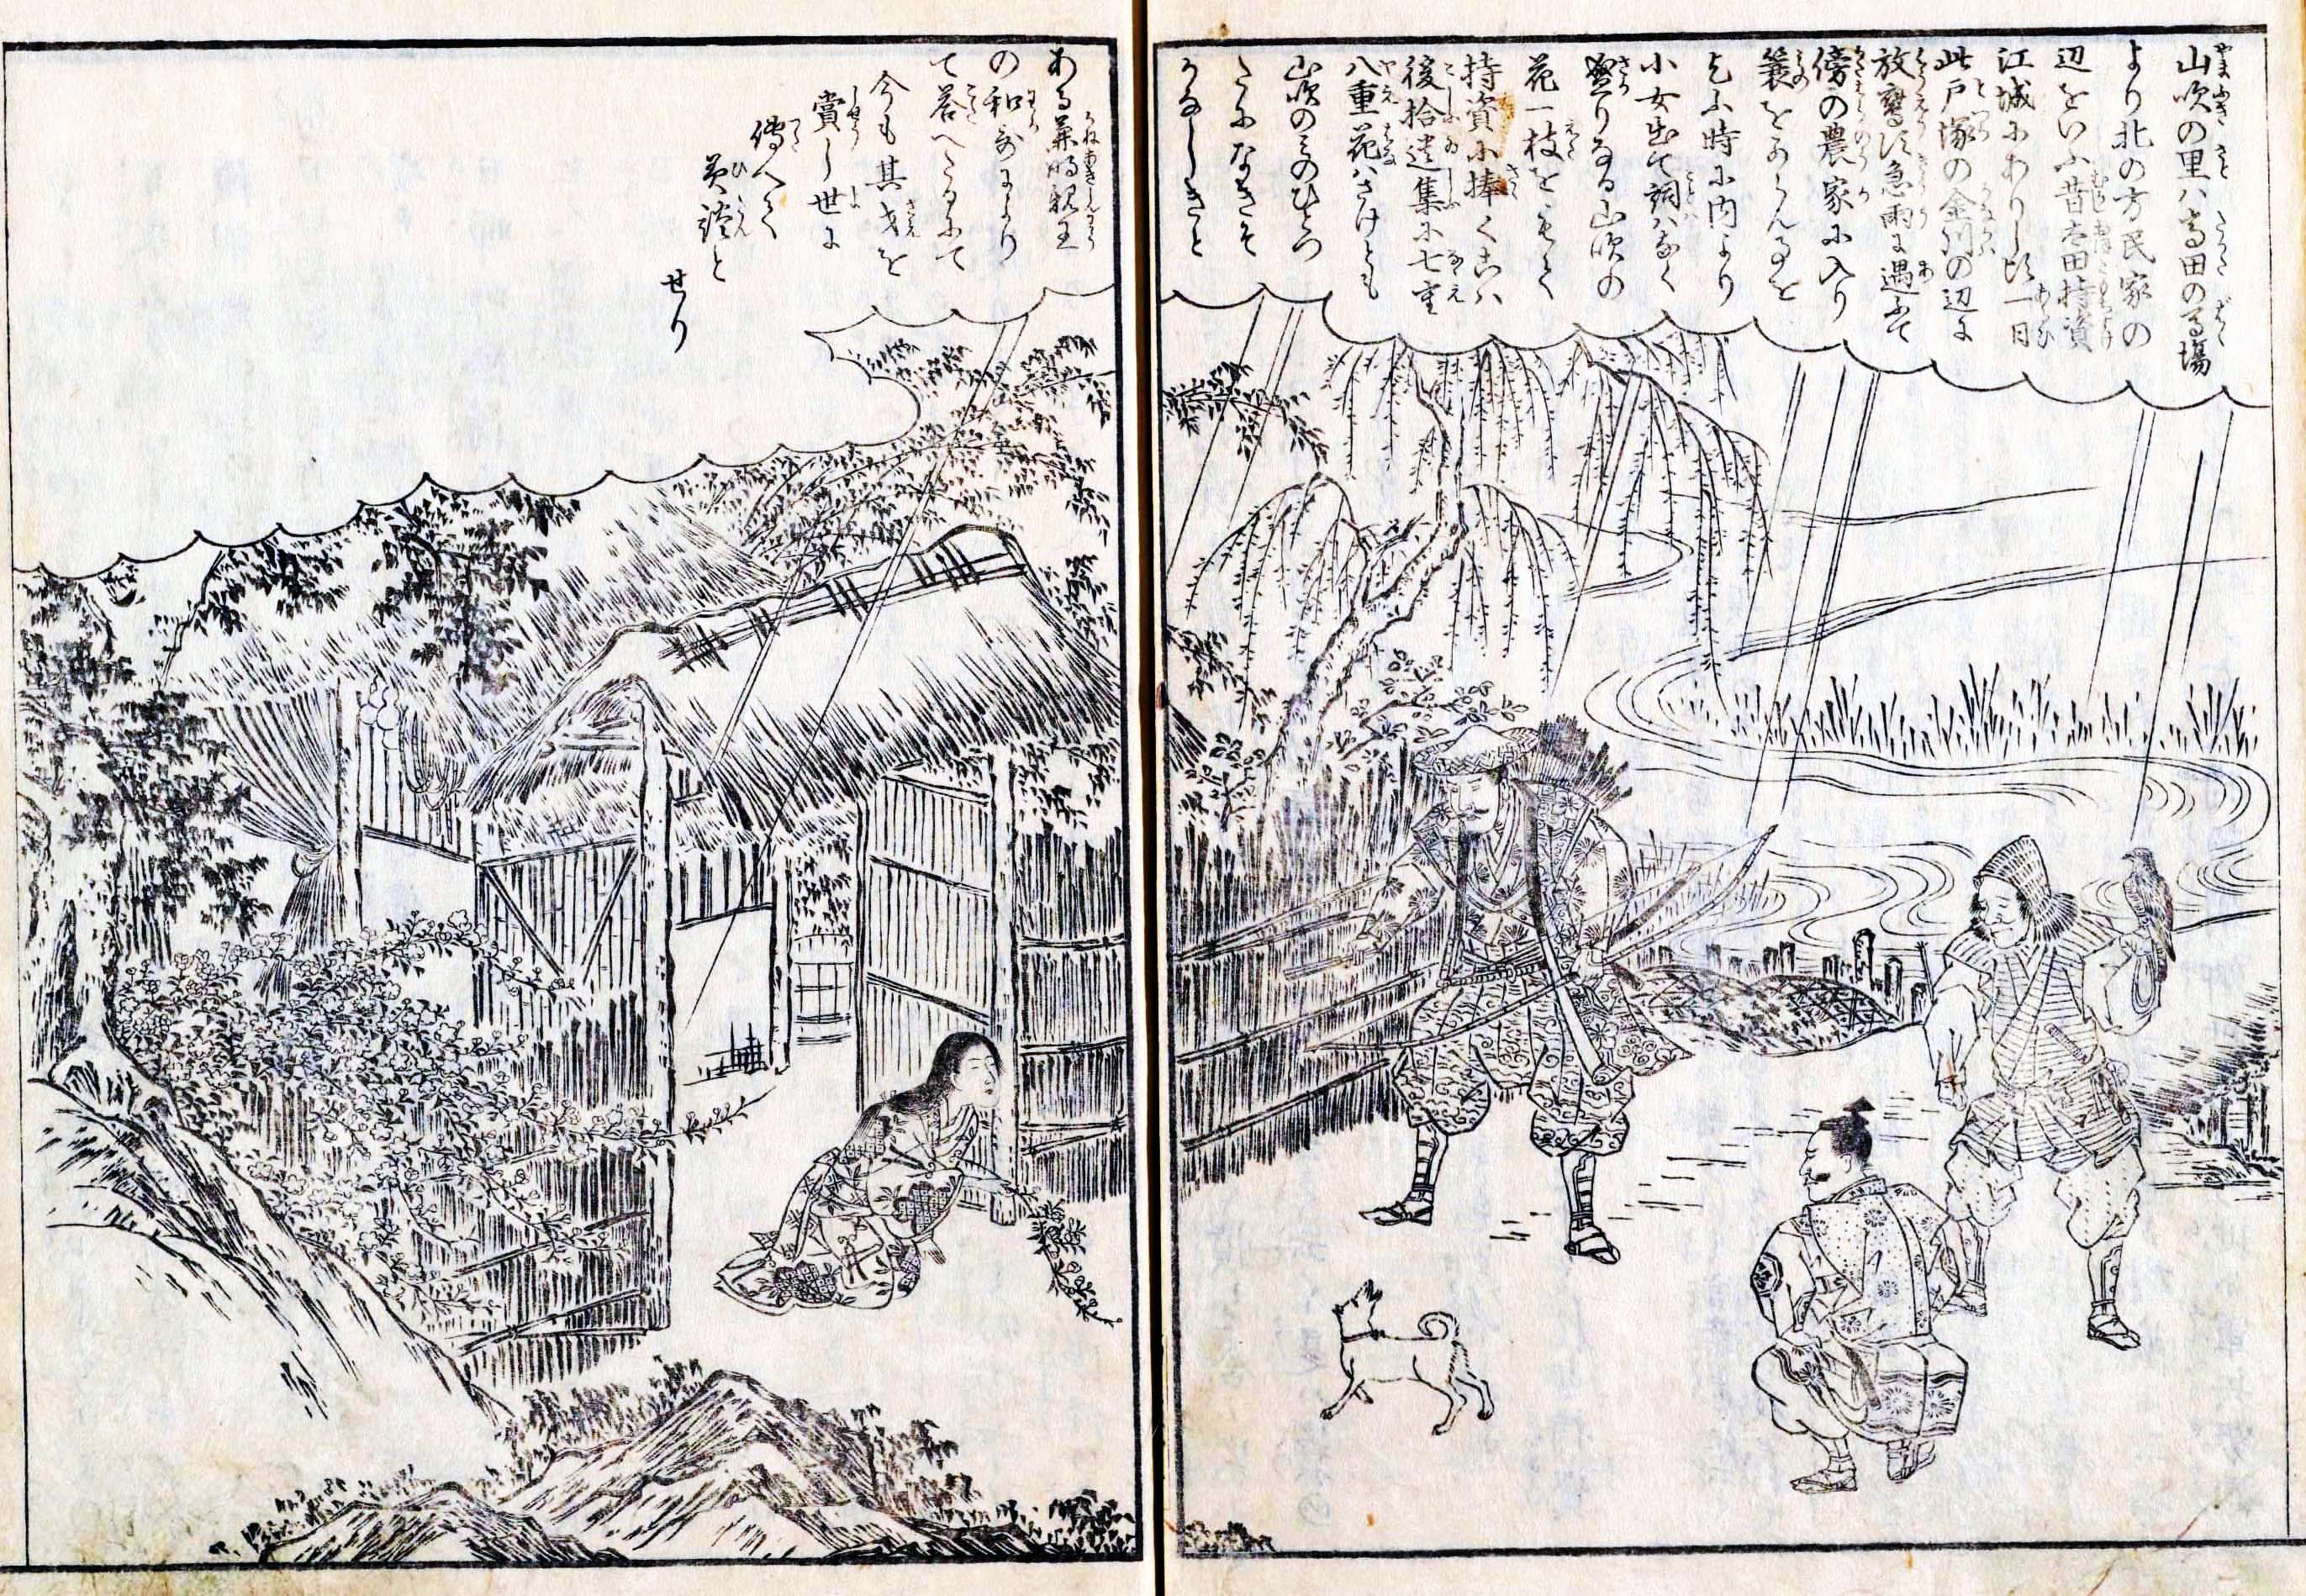 山吹の里ハ高田の馬場
より北の方民家の
辺をいふ昔太田持資
江城にありし頃一日
此戸塚の金川の辺に
放鷹し急雨に遇ふて
傍の農家に入り
簑をからん事を
乞ふ時に内より
小女出て詞ハなく
盛りなる山吹の
花一枝をもて
持資に捧く こハ
後拾遺集に七重
八重花ハさけとも
山吹のみのひとつ
たになきそ
かなしきと
ある兼明親王
の和哥により
て答へたるにて
今も其才を
賞し世に
傳へて
美談と
せり